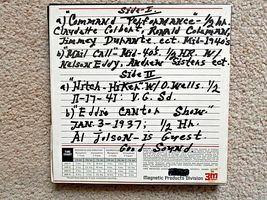 Side-I.
a) "Command Performance" 1/2 hr.
Claydette Colbert, Ronald Coleman,
Jimmey Durante ect. Mid-1940's
b) "Mail Call" Mid-40s. 1/2 HR. W/
Nelson Eddy, Andrew Sisters ect.
Side II
a) "Hitch-Hiker" W/O. Wells. 1/2
11-17-41: V.G. Sd.
b) "Eddie Cantor Show"
JAN. 3-1937; 1/2 Hr.
Al Jolson-is Guest
Good Sound.
Magnetic Products Division
3M